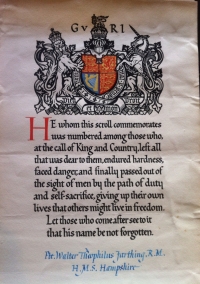 G V R I
HE whom this scroll commemorates
was numbered among those who,
at the call of King and Country, left all
that was dear to them, endured hardness,
faced danger, and finally passed out of
the sight of men by the path of duty
and self-sacrifice, giving up their own
lives that others might live in freedom.
Let those who come after see to it
that his name be not forgotten.
Pte. Walter Theophilus Farthing R.M.
H.M.S. Hampshire